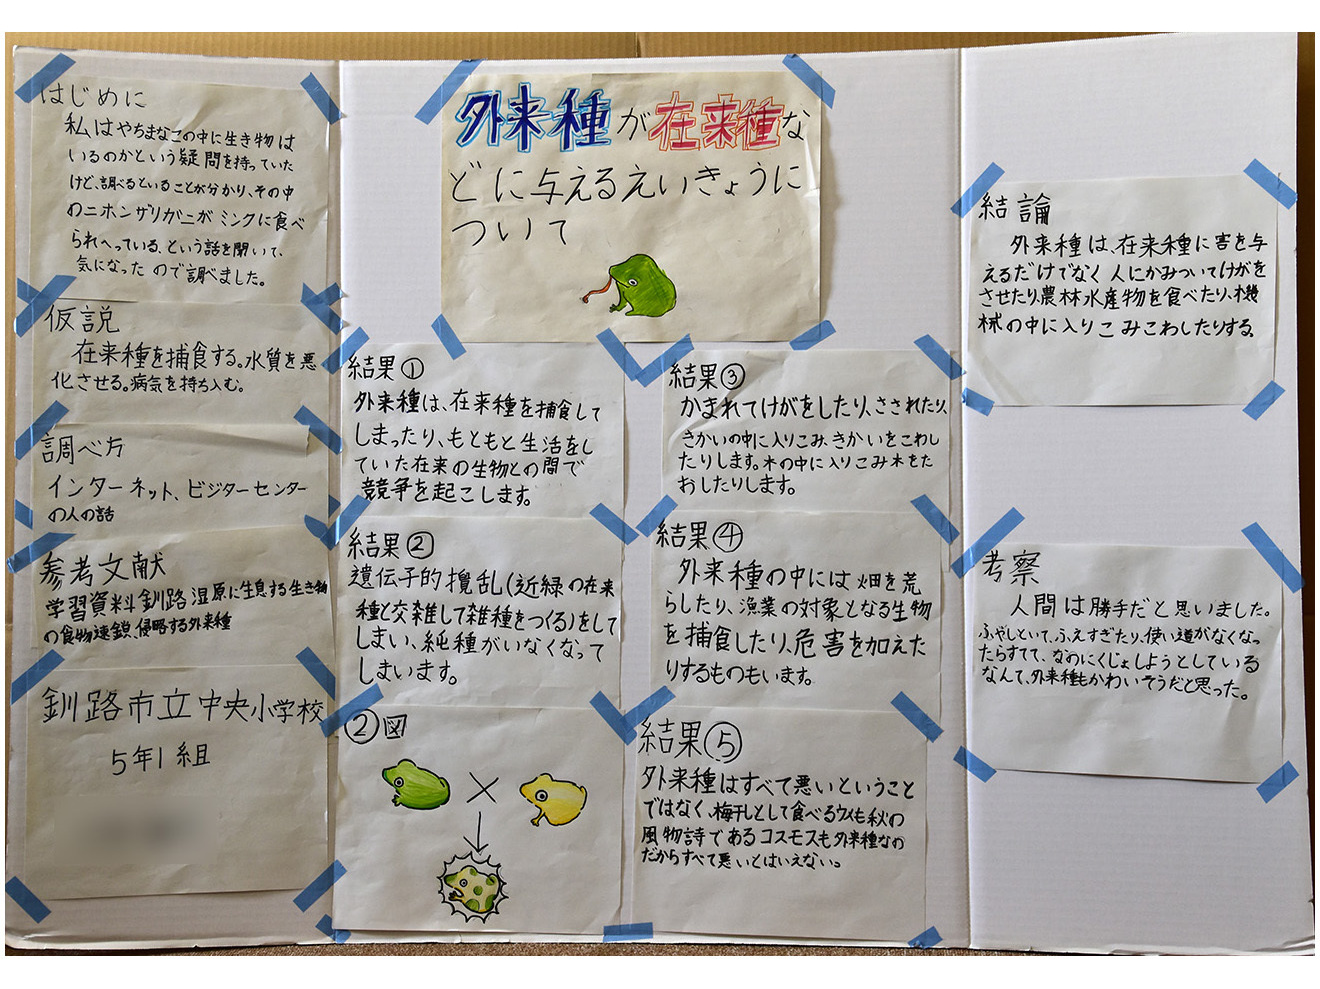 外来種が在来種な
どに与えるえいきょうに
ついて
はじめに
私はやちまなこの中に生き物は
いるのかという疑問を持っていた
けど、調べるといることが分かり、その中
のニホンザリガニがミンクに食べ
られへっている、という話を聞いて、
気になったので調べました。
仮説
在来種を捕食する。水質を悪
化させる。病気を持ち込む。
調べ方
インターネット、ビジターセンター
の人の話
参考文献
学習資料釧路湿原に生息する生き物
の食物連鎖、侵略する外来種
釧路市立中央小学校
5年1組
結果①
外来種は、在来種を捕食して
しまったり、もともと生活をし
ていた在来の生物との間で
競争を起こします。
結果②
遺伝子的撹乱(近緑の在来
種と交雑して雑種をつくる)をして
しまい、純種がいなくなって
しまいます。
②図
×
結果③
かまれてけがをしたり、さされたり、
きかいの中に入りこみ、きかいをこわし
たりします。木の中に入りこみ木をた
おしたりします。
結果④
外来種の中には畑を荒
らしたり、漁業の対象となる生物
を捕食したり、危害を加えた
りするものもいます。
結果⑤
外来種はすべて悪いということ
ではなく、梅干しとして食べるウメも秋の
風物詩であるコスモスも外来種なの
だからすべて悪いとはいえない。
結論
外来種は、在来種に害を与
えるだけでなく人にかみついてけがを
させたり、農林水産物を食べたり、機
械の中に入りこみこわしたりする。
考察
人間は勝手だと思いました。
ふやしといて、ふえすぎたり、使い道がなくなっ
たらすてて、なのにくじょしようとしている
なんて、外来種もかわいそうだと思った。